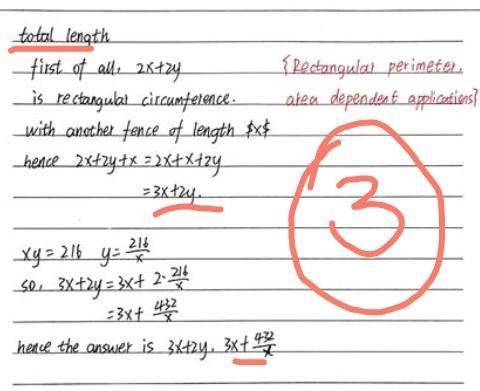 total length
first of all, 2x+2y {Rectangular perimeter,
is rectangular circumference. area dependent applications}
with another fence of length $x$
hence 2x+2y+x=2x+x+2y
=3x+2y.
3
xy=216 y=216/x
so, 3x+2y=3x+2·216/x
=3x+432/x
hence the answer is 3x+2y, 3x+432/x